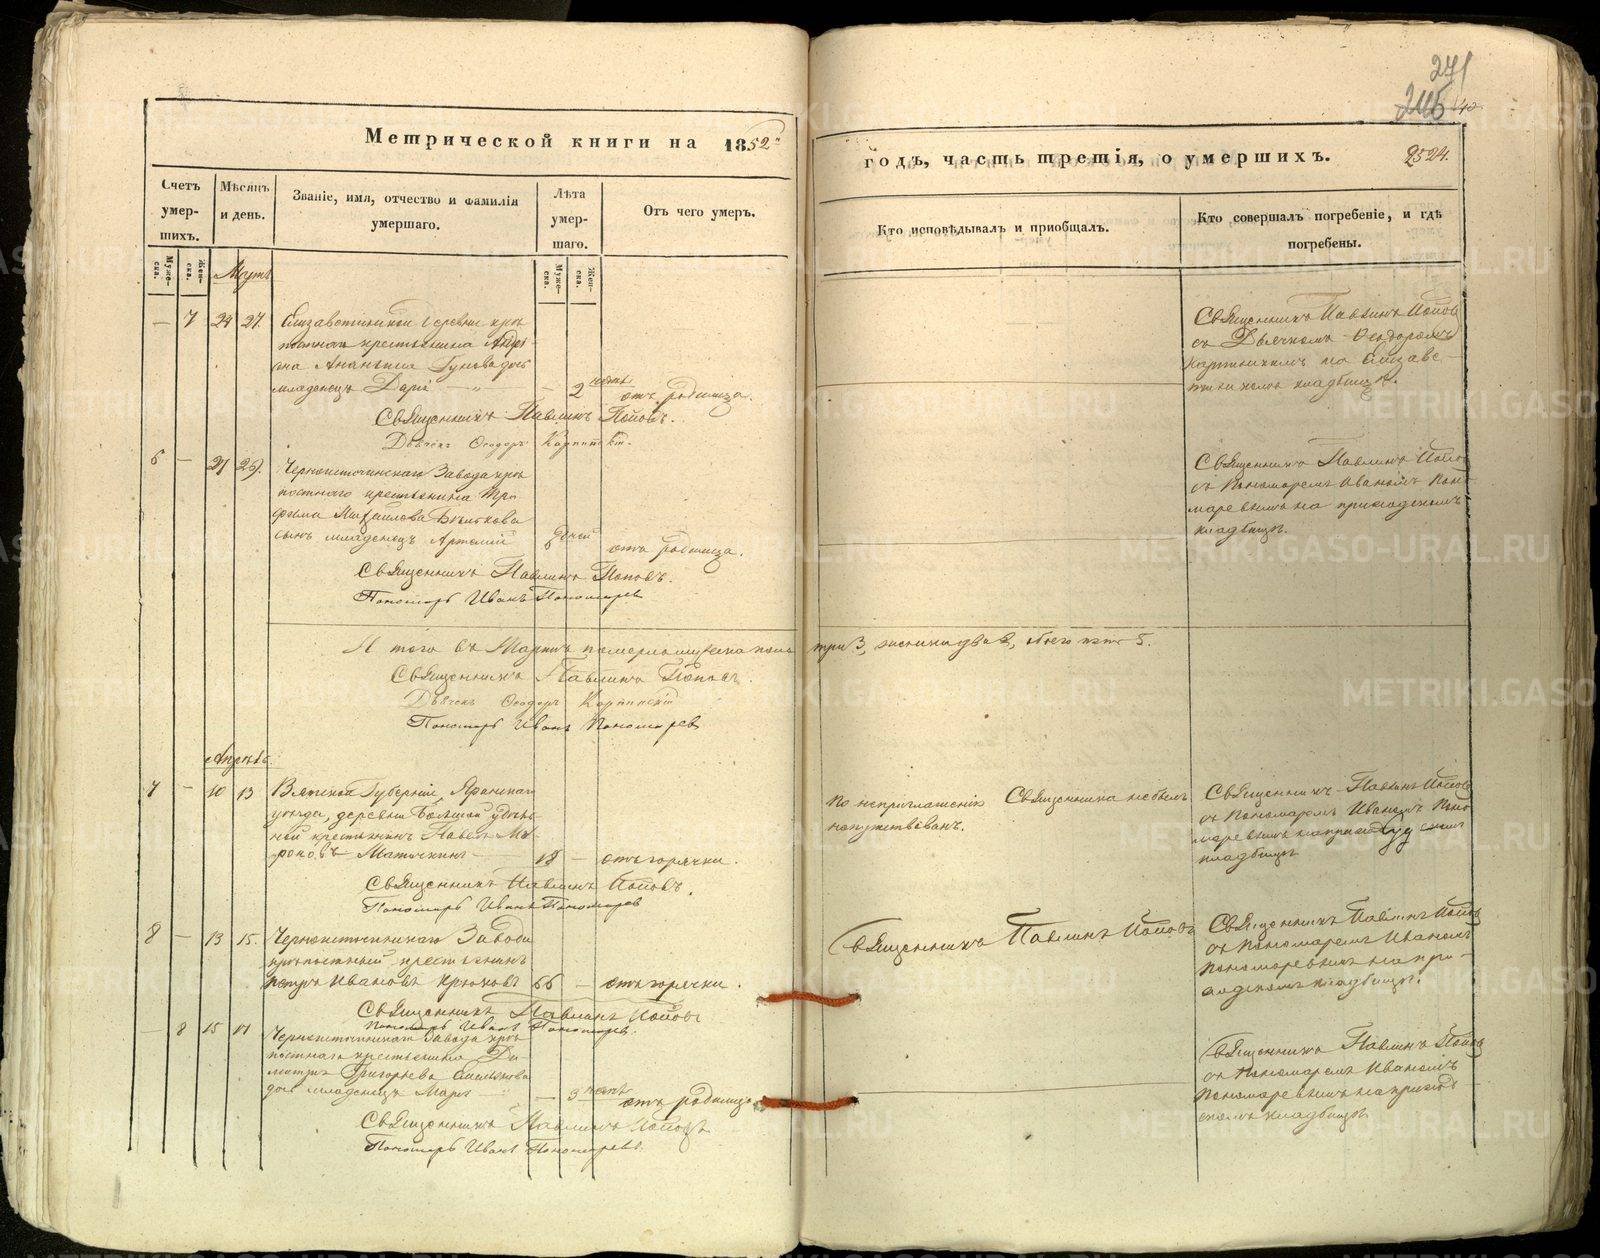 271
245
Метрической книги на 1852й
годъ, часть третія, о умершихъ.
2524.
Счетъ умер-
шихъ.
Муже-
ска.
Жен-
ска.
Мѣсяцъ
и день.
Званіе, имя, отчество и фамилія
умершаго.
Лѣта
умер-
шаго.
Муже-
ска.
Жен-
ска.
Отъ чего умеръ.
Кто исповѣдывалъ и приобщалъ.
Кто совершалъ погребеніе, и гдѣ
погребены.
Мартъ
— 7 24 27. Елизаветинской деревни крѣ
постнаго крестьянина
Ананьина дочь
младенецъ Дарія — 2 отъ родимца.
Священникъ Павлинъ Поповъ.
Дьячекъ Ѳеодоръ
Священникъ Павлинъ Поповъ
съ Дьячкомъ Ѳеодоромъ
на Елизаве-
тинскомъ кладбищѣ.
6 — 27 29. Черноисточинскаго Завода крѣ
постнаго крестьянина Тро
фима Михайлова
сынъ младенецъ Артемій 8 дней отъ родимца.
Священникъ Павлинъ Поповъ.
Пономарь Иванъ Пономарев
Священникъ Павлинъ Попов
съ Пономаремъ Иваномъ Поно-
маревымъ на приходскомъ
кладбищѣ.
Итого въ Мартѣ померло мужеска пола три 3, женска два 2, обоего пять 5.
Священникъ Павлинъ Поповъ.
Дьячекъ Ѳеодоръ
Пономарь Иванъ Пономарев
Апрѣль.
7 — 10 13 Вятской Губерніи, Яранскаго
уѣзда, деревни Большой удѣль
ной крестьянинъ Павелъ Ми-
роновъ 18 — отъ горячки.
Священникъ Павлинъ Поповъ.
Пономарь Иванъ Пономарев
По неприглашенію Священника не былъ
напутствованъ.
Священникъ Павлинъ Попов
съ Пономаремъ Иваномъ Поно
маревымъ на приходскомъ
кладбищѣ
8 — 13 15. Черноисточинскаго Завода
крѣпостный крестьянинъ
Петръ Ивановъ Крюковъ 66 — отъ горячки.
Священникъ Павлинъ Поповъ
Пономарь Иванъ Пономарев.
Священникъ Павлинъ Поповъ
Священникъ Павлинъ Попов
съ Пономаремъ Иваномъ
Пономаревымъ на при-
ходскомъ кладбищѣ.
— 8 15 17 Черноисточинскаго Завода крѣ
постнаго крестьянина Ди
митрія Григорьева
дочь младенецъ Марія — 3 отъ родимца
Священникъ Павлинъ Поповъ
Пономарь Иванъ Пономаревъ.
Священникъ Павлинъ Попов
съ Пономаремъ Иваномъ
Пономаревымъ на приход
скомъ кладбищѣ
METRIKI.GASO-URAL.RU